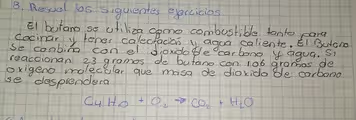 8. Resuel los siguientes ejercicios
El butano se utiliza como combustible tanto para
cocinar y tener calefacción y agua caliente. El Butano
Se combina con el dioxido de carbono y agua. Si
reaccionan 23 gramos de butano con 1.06 gramos de
oxigeno molecular que masa de dioxido de carbono
se desprendera
C4 H10 + O2 → CO2 + H2O